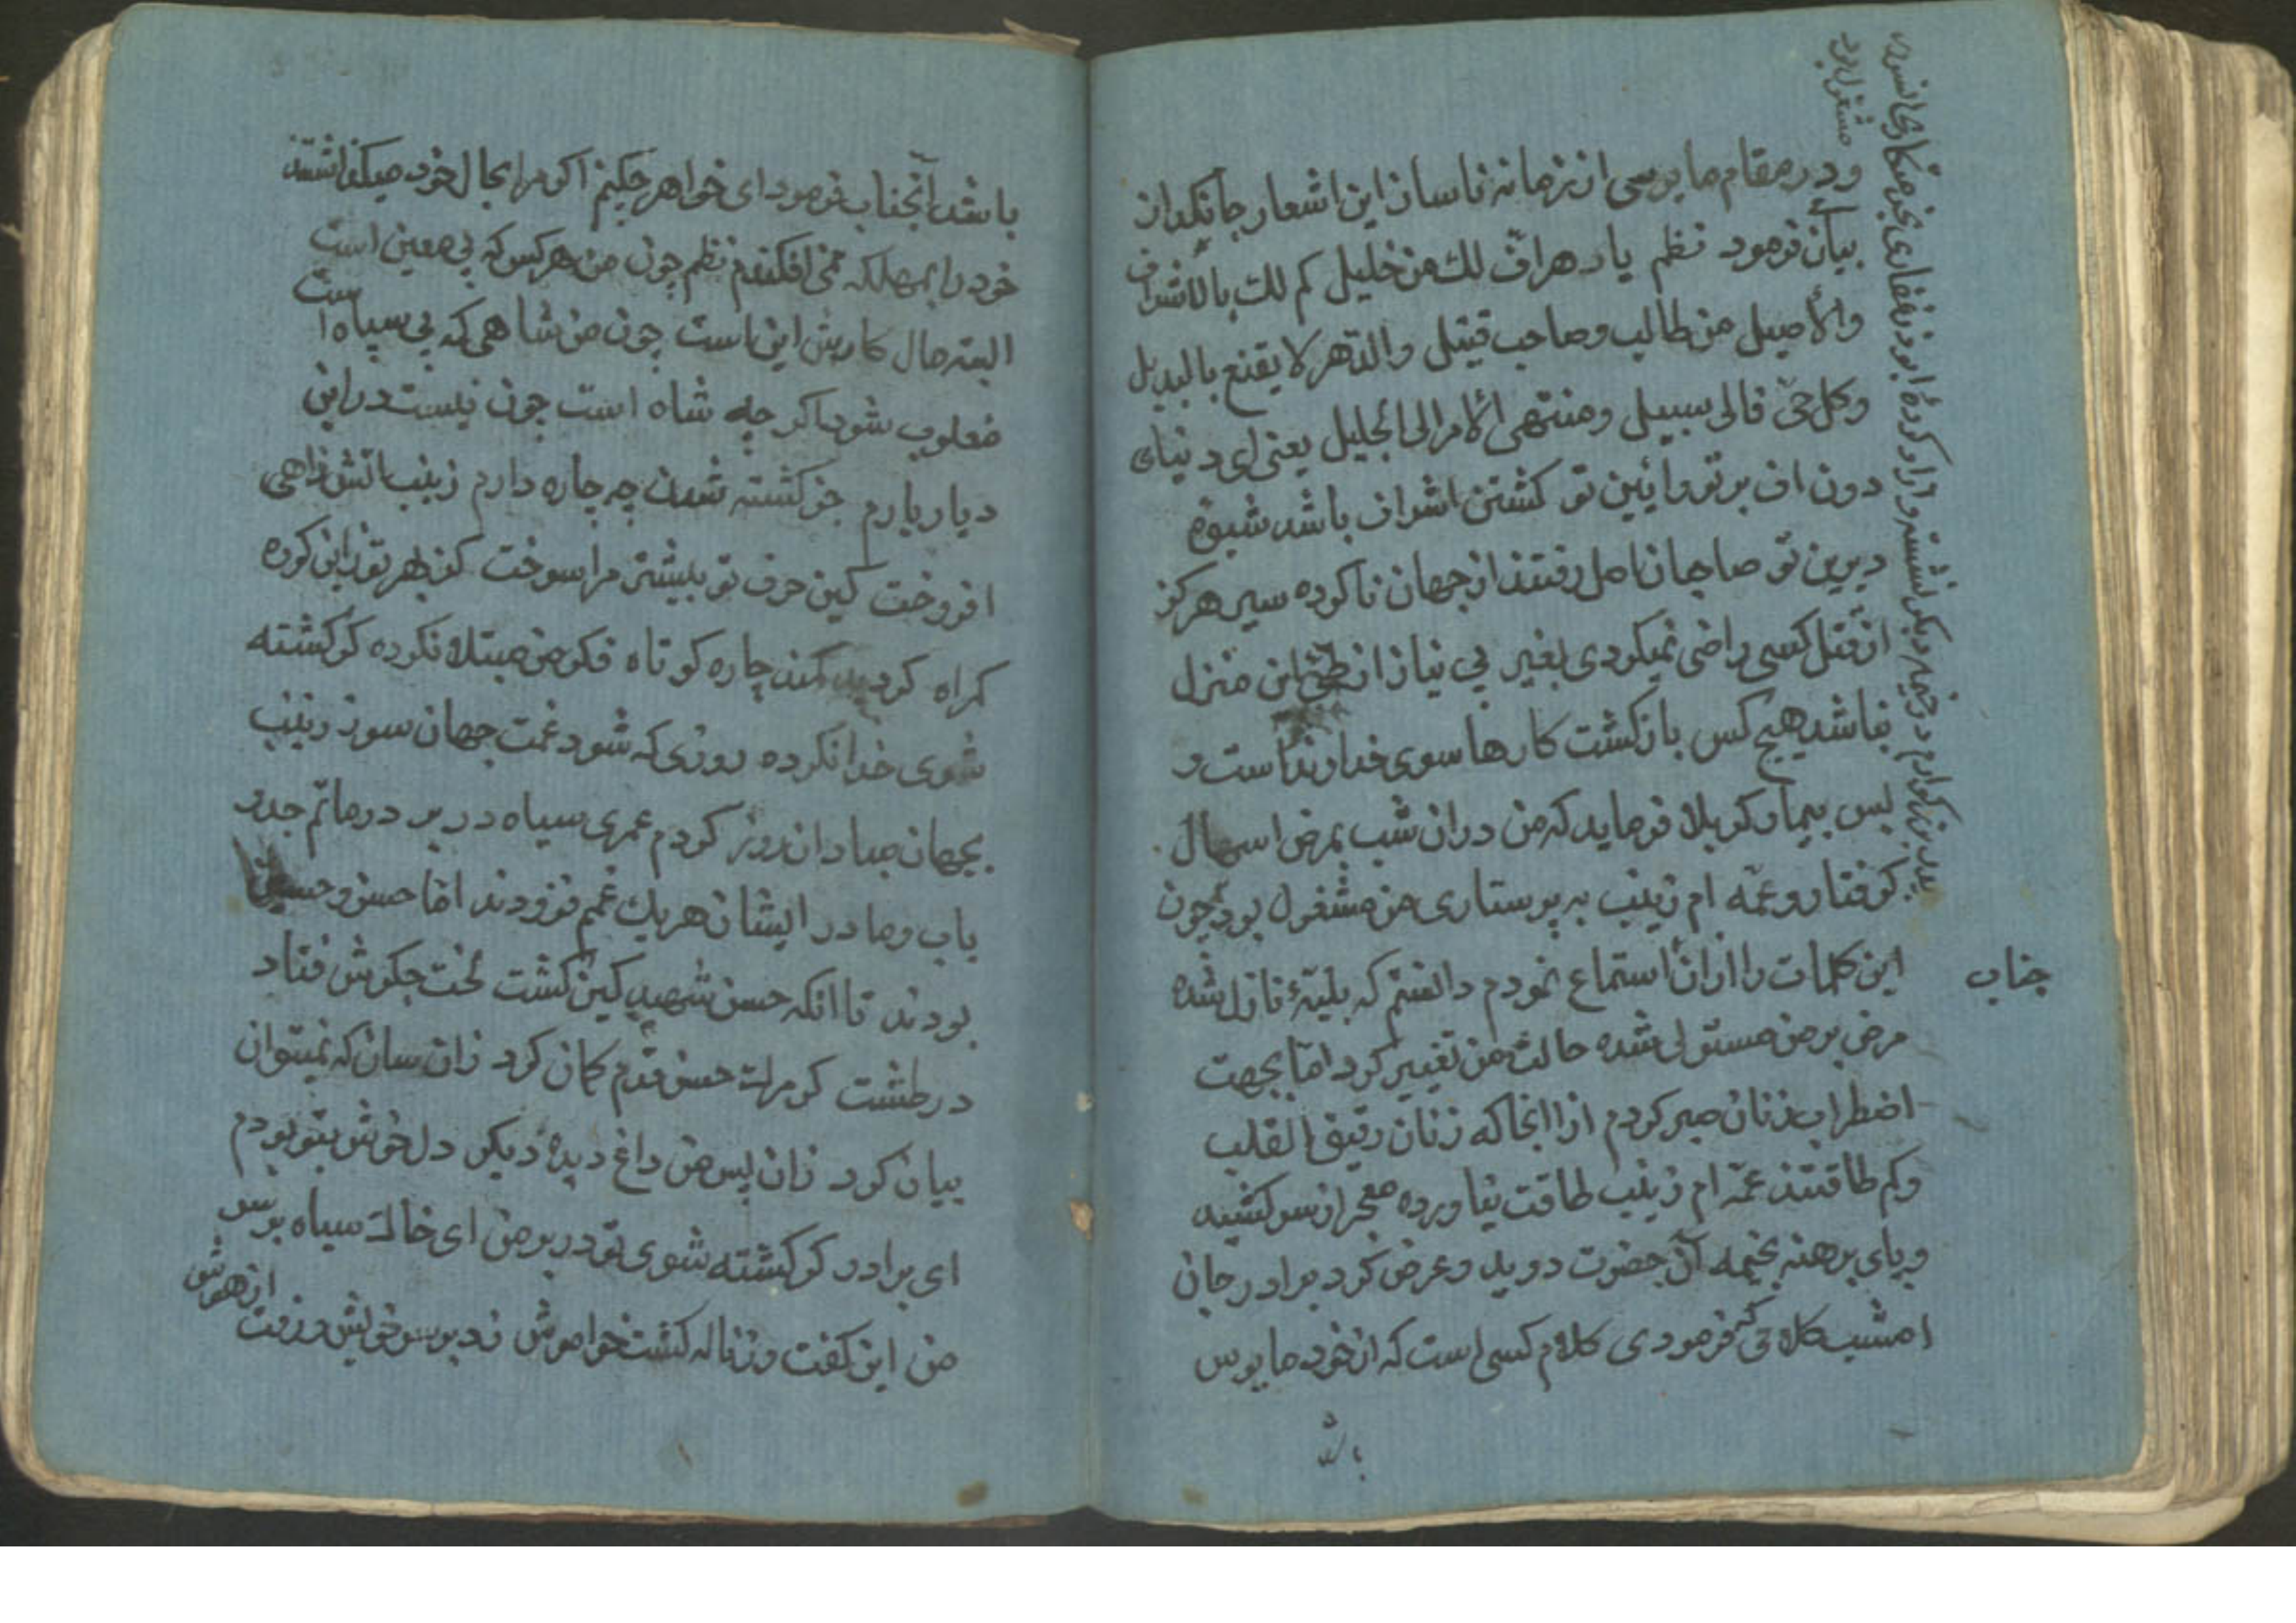 و در مقام مایوسی از زمانه ناساز این اشعار جانگداز
بیان فرمود نظم یا دهر اف لك من خلیل کم لك بالاشراق
والأصیل من طالب وصاحب قتیل والدهر لا یقنع بالبدیل
وکل حی فالی سبیل ومنتهی الأمر الی الجلیل یعنی ای دنیای
دون اف بر تو و ائین تو کشتن اشراف باشد شیوهٔ
دیرین تو صاحبان امل رفتند از جهان ناکرده سیر هرکز
از قتل کسی راضی نمیکردی بغیر بی نیاز از طی این منزل
نباشد هیچ کس بازکشت کارها سوی خداونداست و
بس بیمار کربلا فرماید که من دران شب بمرض اسهال
کرفتار و عمّه ام زینب به پرستاری من مشغول بود چون
این کلمات را ازان استماع نمودم دانستم که بلیّهٔ نازل شده
جناب
مرض بر من مستولی شده حالت من تغییر کرد امّا بجهت
اضطراب زنان صبر کردم از انجا که زنان رقیق القلب
وکم طاقتند عمّه ام زینب طاقت نیاورده معجر از سر کشیده
و پای برهنه بخیمه آن حضرت دوید و عرض کرد برادر جان
امشب کلامی که فرمودی کلام کسی است که از خود مایوس
پدر بزرکوارم در خیمه دیکر نشسته و ابوذر غفاری
مشغول بود
باشد آنجناب فرمود ای خواهر چکنم اکر مرا بحال خود میکذاشتند
خود را بمهلکه نمی افکندم نظم چون من هرکس که بی معین است
البته مال کارش این است چون من شاهی که بی سپاه است
مغلوب شود اکر چه شاه است چون نیست در این
دیار یارم جز کشته شدن چه چاره دارم زینب اتش زاهی
افروخت کین حرف تو بیشتر مرا سوخت کز بهر تو زاین کوره
کمراه کردید کمند چاره کوتاه فکر من مبتلا نکرده کر کشته
شوی خدا نکرده روزی که شود غمت جهان سوز زینب
بجهان مباد ان روز کردم عمری سیاه در بر در ماتم جد و
باب و مادر ایشان هریك غمم فزودند امّا حسن و حسین
بودند تا انکه حسن شهید کین کشت لخت جکرش فتاد
در طشت کر مرك حسن قدم کمان کرد زان سان که نمیتوان
بیان کرد زان پس من داغ دیدهٔ دیکر دل خوش بتو بودم
ای برادر کر کشته شوی تو در بر من ای خاك سیاه بر سر
من این کفت و زناله کشت خواموش زد بر سر خویش و رفت از هوش